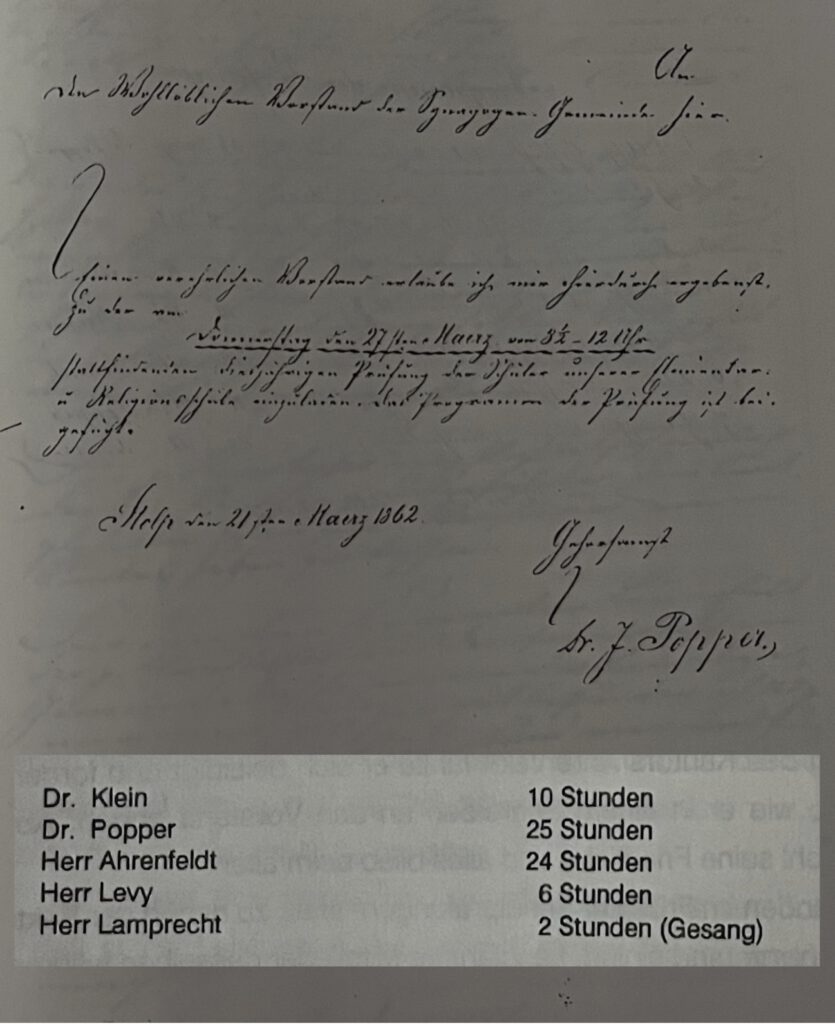 An
Den Wohllöblichen Vorstand der Synagogen-Gemeinde hier.
Einen verehrlichen Vorstand erlaube ich mir hierdurch ergebenst,
zu der am
Donnerstag den 27sten Maerz von 8½ – 12 Uhr
stattfindenden diesjährigen Prüfung der Schüler unserer Elementar-
u Religionsschule einzuladen. Das Programm der Prüfung ist bei-
gefügt.
Stolp den 21sten Maerz 1862.
Gehorsamst
Dr. J. Popper.
Dr. Klein 10 Stunden
Dr. Popper 25 Stunden
Herr Ahrenfeldt 24 Stunden
Herr Levy 6 Stunden
Herr Lamprecht 2 Stunden (Gesang)